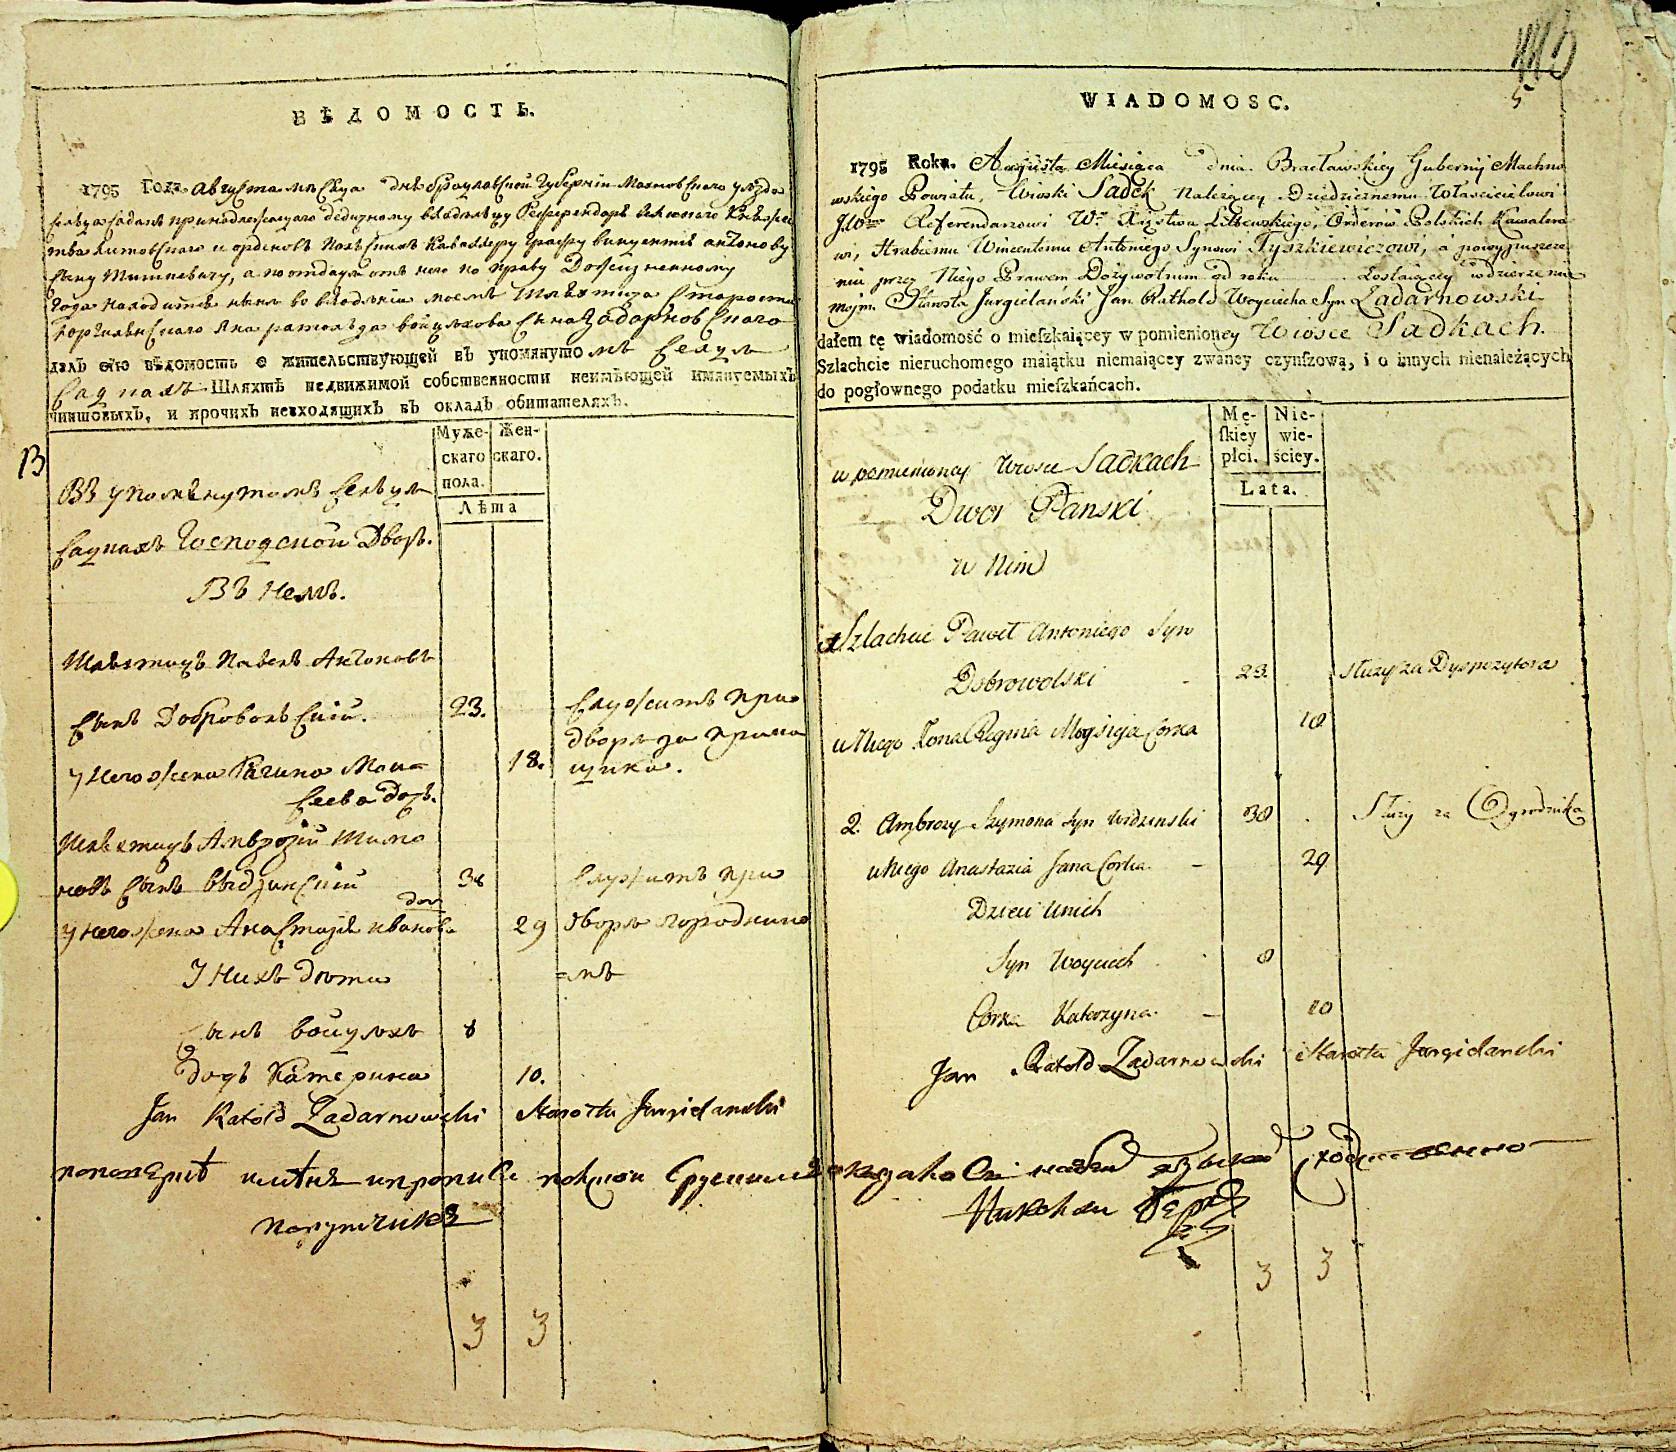 ВѢДОМОСТЬ.
1795 Года Августа мѣсяца дня Брацлавской Губернїи Махновскаго уѣзда
сельца Садокъ принадлежащаго дѣдичному владѣльцу Референдарѣ Великого Княже
тва Литовскаго и орденовъ Польскихъ Кавалеру Графу Викентїю Антонову
сыну Тишкевичу, а по отдачѣ отъ него по праву Дожизненному
года находится нынѣ во владѣнїи моемъ Шляхтича Старосты
Юргелянскаго Яна Ратольда Войцѣхова сына Задарновскаго
далъ сїю вѣдомость о жительствующей въ упомянутомъ сельцѣ
Садкахъ Шляхтѣ недвижимой собственности неимѣющей имянуемыхъ
чиншовыхъ, и прочихъ невходящихъ въ окладъ обитателяхъ.
13
Муже- Жен-
скаго скаго.
пола.
Лѣта
Въ упомянутомъ сельцѣ
Садкахъ Господской Дворъ.
Въ немъ.
Шляхтичъ Павелъ Антоновъ
сынъ Добровольскїй. 23.
Служитъ при
дворѣ за прика
щика.
у него жена Рагина Мои= 18.
сеева дочь.
Шляхтичъ Амврозїй Шимо
новъ сынъ Выдзинскїй 38
Служитъ при
дворѣ городнико
=мъ
у него жена Анастазїя Иванова доч 29
у нихъ дѣти
сынъ Войцѣхъ 8
дочь Катерина 10.
Jan Ratold Zadarnowski Starosta Jurgielanski
3 3
WIADOMOSC.
5
1795 Roku. Augusta Miesiąca dnia Bracławskiey Gubernij Machno
wskiego Powiatu, Wioski Sadek Należącey Dziedzicznemu Właścicielowi
JWo Referendarzowi W. Xięztwa Littewskiego, Orderów Polskich Kawalero
wi, Hrabiemu Wincentemu Antoniego Synowi Tyszkiewiczowi, a po wypuszcze
niu przez Niego Prawem Dożywotnim od roku Zostaiącey w dzierżeniu
moim Starosta Jurgielański Jan Rathold Woyciecha Syn Zadarnowski
dałem tę wiadomość o mieſzkaiącey w pomienioney Wiosce Sadkach.
Szlachcie nieruchomego maiątku niemaiącey zwaney czynſzową, i o innych nienależących
do pogłownego podatku mieſzkańcach.
Mę- Nie-
ſkiey wie-
płci. ściey.
Lata.
w pomienioney Wiosce Sadkach
Dwor Panski
w Nim
1 Szlachcic Paweł Antoniego Syn
Dobrowolski 23. służy za Dyspozytora
u Niego Zona Regina Moysieja Corka 18
2. Ambrozy Szymona Syn Widzinski 38 Służy za Ogrodnika
u Niego Anastazia Jana Corka. 29
Dzieci Unich
Syn Woyciech 8
Corka Katerzyna. 10
Jan Ratold Zadarnowski Starosta Jurgielanski
3 3